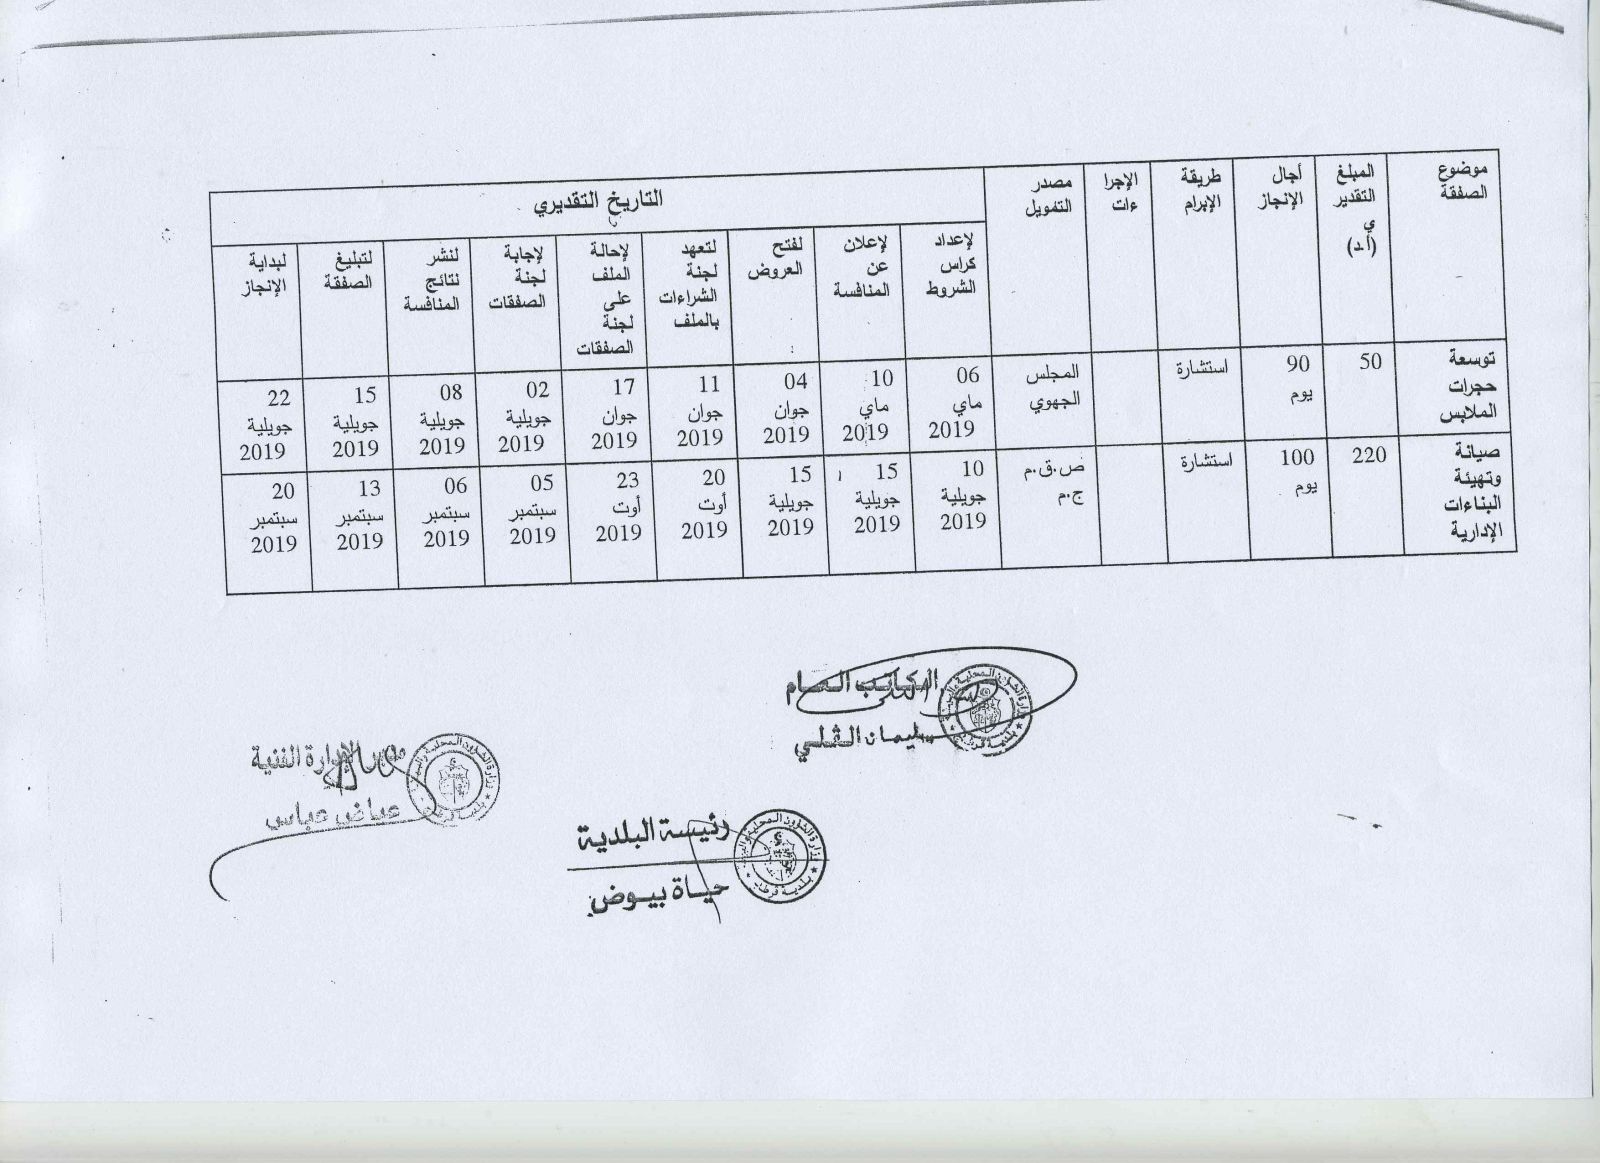 موضوع الصفقة
المبلغ التقدير ي (أ.د)
أجال الإنجاز
طريقة الإبرام
الإجرا ءات
مصدر التمويل
التاريخ التقديري
لإعداد كراس الشروط
لإعلان عن المنافسة
لفتح العروض
لتعهد لجنة الشراءات بالملف
لإحالة الملف على لجنة الصفقات
لإجابة لجنة الصفقات
لنشر نتائج المنافسة
لتبليغ الصفقة
لبداية الإنجاز
توسعة حجرات الملابس
50
90 يوم
استشارة
المجلس الجهوي
06 ماي 2019
10 ماي 2019
04 جوان 2019
11 جوان 2019
17 جوان 2019
02 جويلية 2019
08 جويلية 2019
15 جويلية 2019
22 جويلية 2019
صيانة وتهيئة البناءات الإدارية
220
100 يوم
استشارة
ص.ق.م ج.م
10 جويلية 2019
15 جويلية 2019
15 جويلية 2019
20 أوت 2019
23 أوت 2019
05 سبتمبر 2019
06 سبتمبر 2019
13 سبتمبر 2019
20 سبتمبر 2019
الكاتب العام
سليمان الڤلي
الإدارة الفنية
عياض عباس
رئيسة البلدية
حياة بيوض